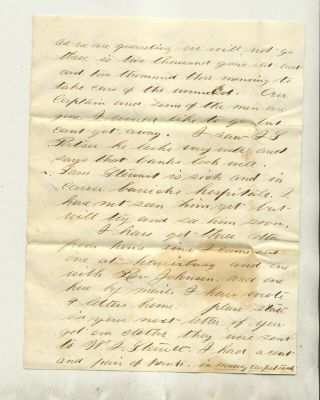 as we are guarding we will not go
there is two thousand gone old last
and two thousand this morning to
take care of the wounded. Our
Captain and some of the men are
gone I would like to go but
cant get away. I saw J S
he looks very well and
says that banks look well.
Sam Stewart is sick and in
barricks hospitals. I
have not seen him yet but
will try and see him soon.
I have got three letter
from home since I came out
one at and one
with Rev Johnson and one
here by mail. I have wrote
4 letters home. please state
in your next letter if you
got our cloths they were sent
to W. J. I had a coat
and pair of pants in many carpet sack